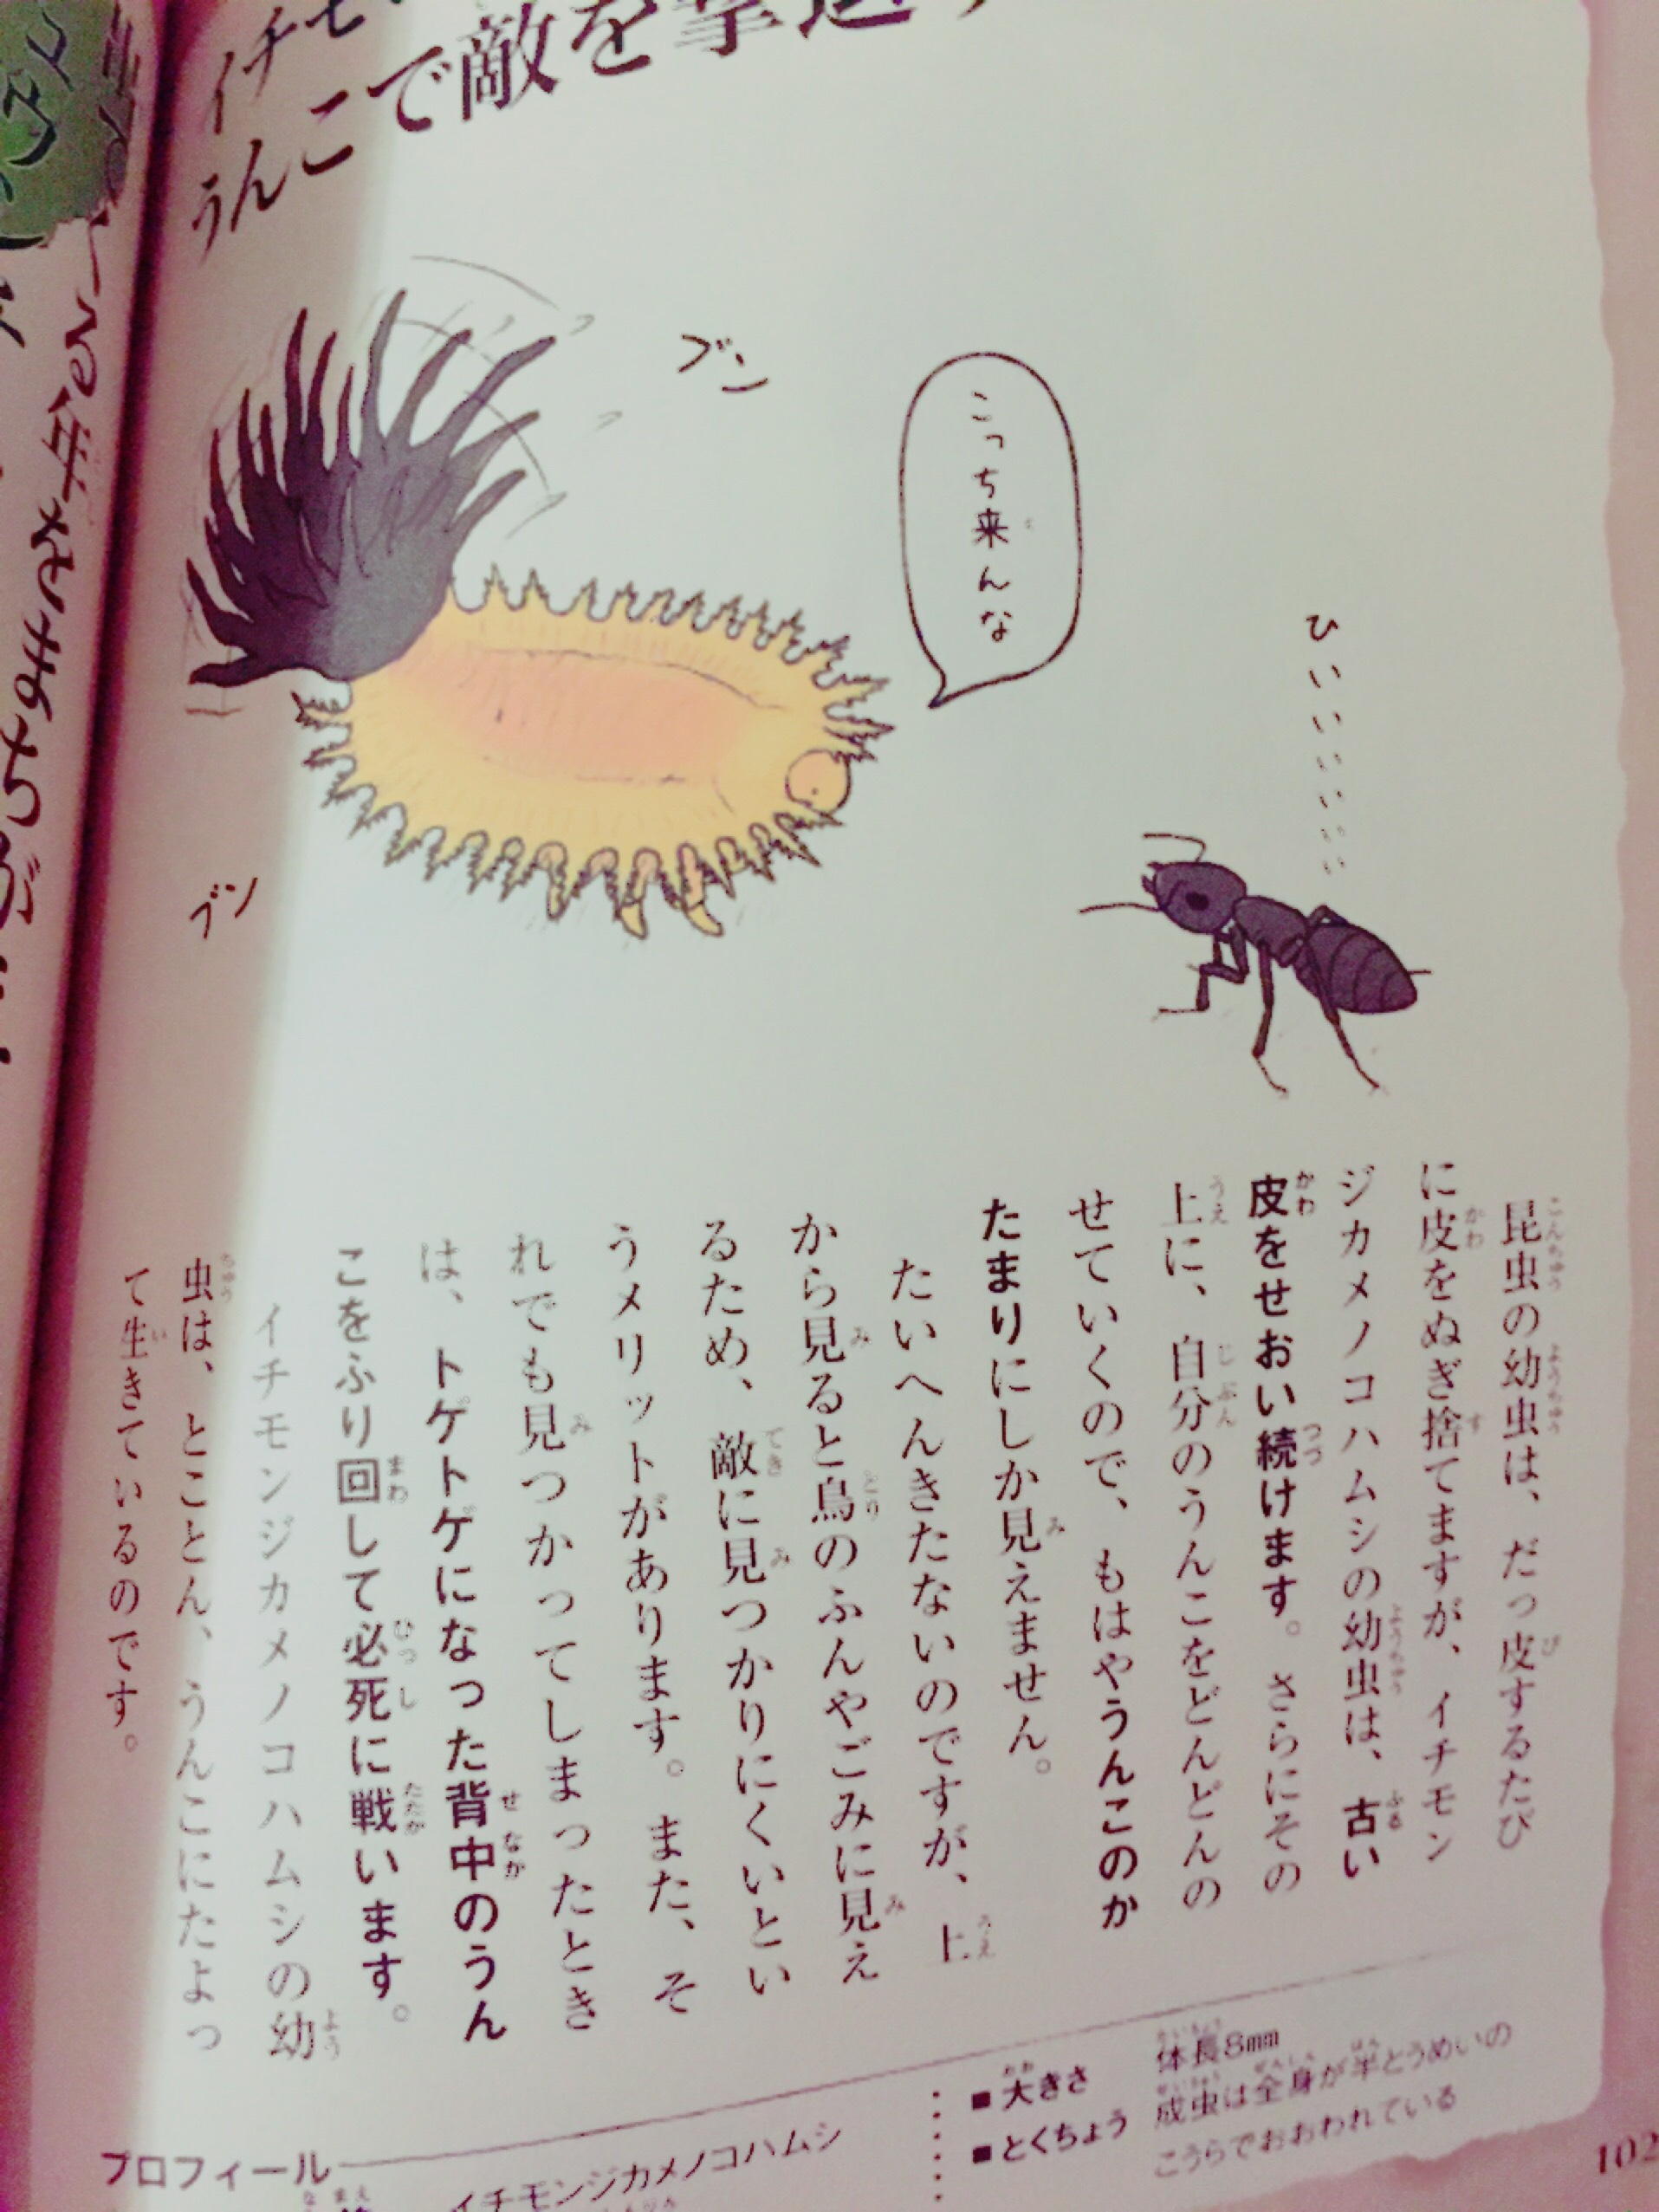 うんこで敵を撃退
ブン
こっち来んな
ひいいいいいい
ブン
昆虫の幼虫は、だっ皮するたび
に皮をぬぎ捨てますが、イチモン
ジカメノコハムシの幼虫は、古い
皮をせおい続けます。さらにその
上に、自分のうんこをどんどんの
せていくので、もはやうんこのか
たまりにしか見えません。
たいへんきたないのですが、上
から見ると鳥のふんやごみに見え
るため、敵に見つかりにくいとい
うメリットがあります。また、そ
れでも見つかってしまったとき
は、トゲトゲになった背中のうん
こをふり回して必死に戦います。
イチモンジカメノコハムシの幼
虫は、とことん、うんこにたよっ
て生きているのです。
プロフィール
イチモンジカメノコハムシ
■大きさ 体長8mm
■とくちょう 成虫は全身が半とうめいの
こうらでおおわれている
102